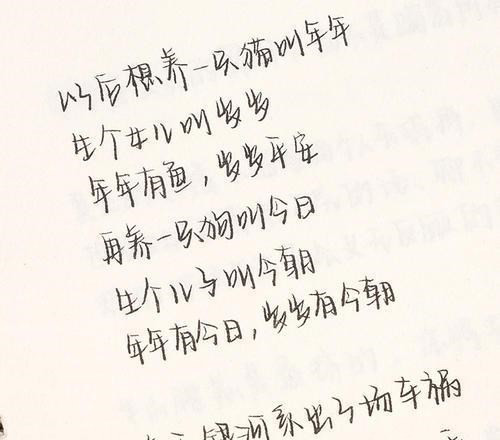 以后想养一只猫叫年年
生个女儿叫岁岁
年年有鱼，岁岁平安
再养一只狗叫今日
生个儿子叫今朝
年年有今日，岁岁有今朝
银河系出了场车祸